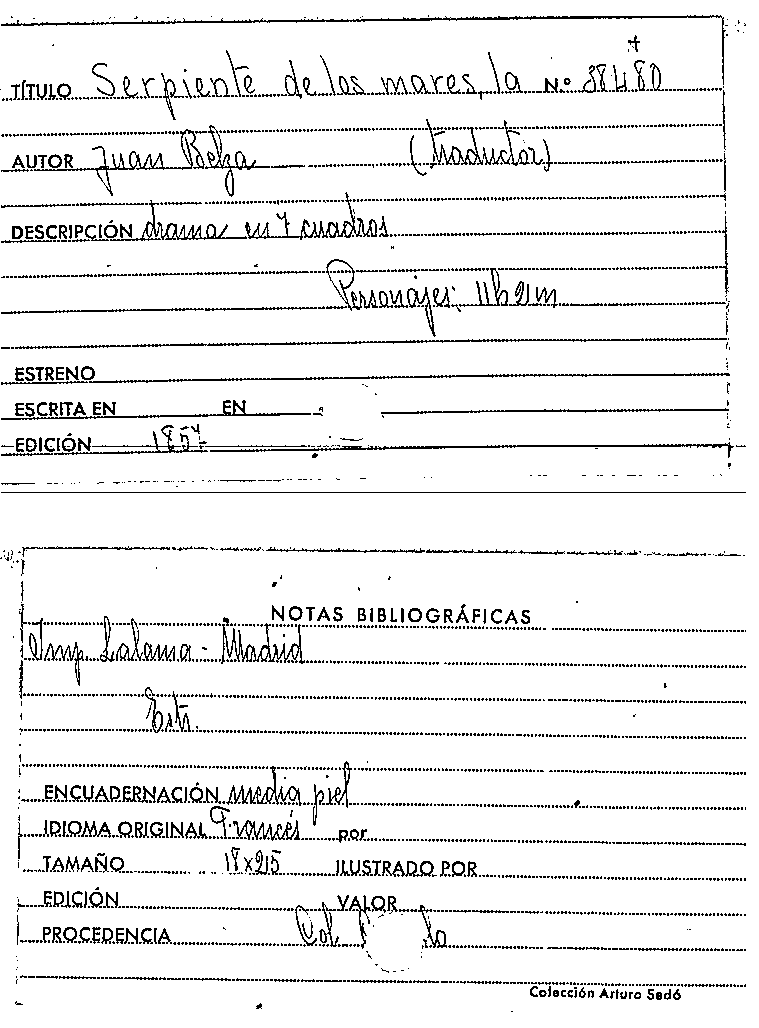 TÍTULO Serpiente de los mares, la Nº 38480
AUTOR Juan Belza (traductor)
DESCRIPCIÓN drama en 7 cuadros
Personajes: 11h 2m
ESTRENO
ESCRITA EN EN
EDICIÓN 1857
NOTAS BIBLIOGRÁFICAS
Imp. Lalama - Madrid
Estr.
ENCUADERNACIÓN media piel
IDIOMA ORIGINAL Francés por
TAMAÑO ILUSTRADO POR
EDICIÓN VALOR
PROCEDENCIA Col.
Colección Arturo Sedó